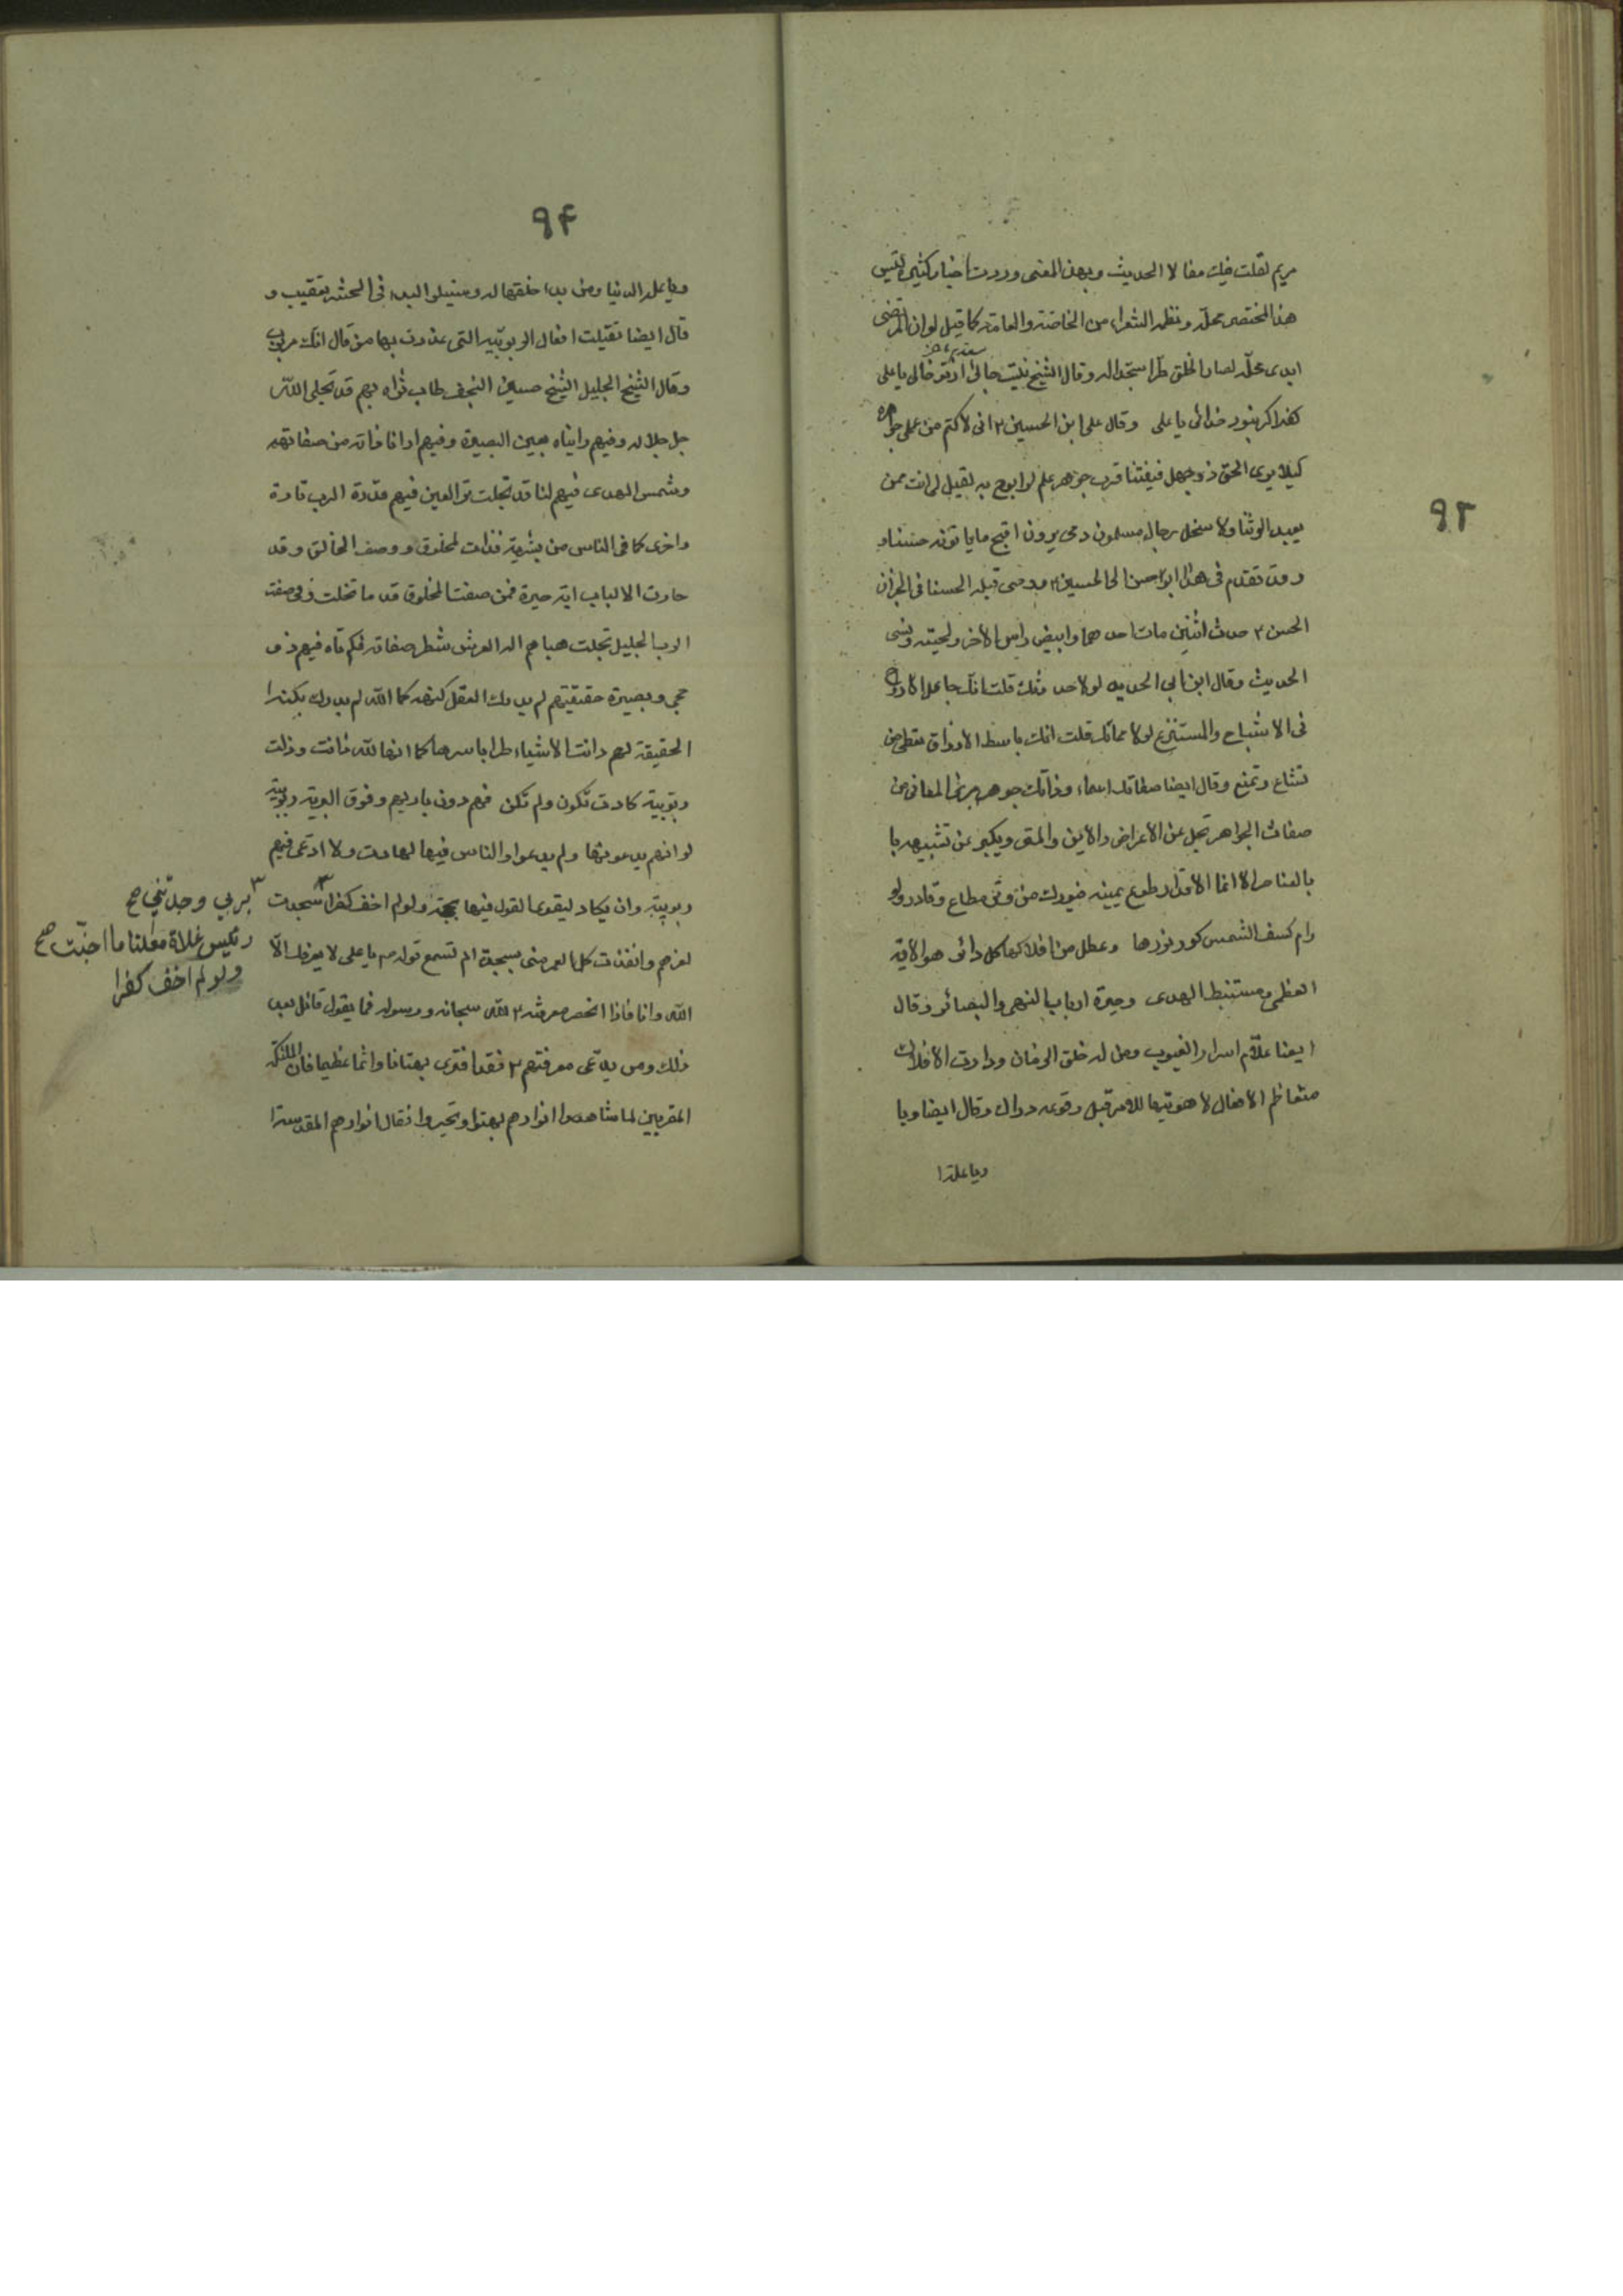 ٩٣
مريم لقلت فيك مقالا الحديث وبهذا المعنى ووردت اخبار كثيرة ليس
هذا المختصر محله ونظمه الشعراء من الخاصة والعامة كما قيل لو ان المرتضى
ابدى محله لصار الخلق طرا سجدا له وقال الشيخ نيست جائى از تو خالى يا على
كفر اكر نبود خدائى يا على وقال على ابن الحسين ٢ انى لاكتم من علمى جواهره
كيلا يرى الحق ذو جهل فيفتتنا فرب جوهر علم لو ابوح به لقيل لى انت ممن
يعبد الوثنا ولاستحل رجال مسلمون دمى يرون اقبح ما ياتونه حسنا و
وقد تقدم فى هذا ابو حسن الى الحسين ٢ ووصى قبله الحسنا فى الجزان
الحسن ٢ حدث اثنين مات احدهما وابيض راس الاخر ولحيته ونسى
الحديث وقال ابن ابي الحديد لولا حدوثك قلت انك جاعل الارواح
فى الاشباح والمستنزع لولا مماتك قلت انك باسط الارزاق تقطى من
تشاء وتمنع وقال ايضا صفاتك اسماء وذاتك جوهر برئ المعانى من
صفات الجواهر تجل عن الاعراض والاين والمتى ويكبر عن تشبيهه با
بالعناصر الا انما الاقدار طوع يمينه فبورك من وتر مطاع وقادر ولو
رام كسف الشمس كور نورها وعطل من افلاكها كل دائر هو الاية
العظمى ومستنبط الهدى وحيرة ارباب النهى والبصائر وقال
ايضا علام اسرار الغيوب ومن له خلق الزمان ودارت الافلاك
متعاظم الافعال لاهوتيها للامر قبل وقوعه دراك وقال ايضا ويا
ويا علة ا
٩۴
ويا علة الدنيا ومن بدء خلقها له وسيتلو البدء فى الحشر تعقيب و
قال ايضا تقيلت افعال الربوبية التى عذرت بها من قال انك مربوب
وقال الشيخ الجليل الشيخ حسين النجف طاب ثراه بهم قد تجلى الله
جل جلاله وفيهم رايناه بعين البصيرة وفيهم ارانا ذاته من صفاتهم
وشمس الهدى فيهم لنا قد تجلت ترى العين فيهم قدرة الرب تارة
واخرى كما فى الناس من بشرية فذات لمخلوق ووصف الخالق وقد
حارت الالباب اية حيرة فمن صفت المخلوق قد ما تخلت وفى صفت
الرب الجليل تجلت حباهم اله العرش شطر صفاته فكم تاه فيهم ذو
حجى وبصيرة حقيقتهم لم يدرك العقل كنهه كما الله لم يدرك بكنه ا
الحقيقة لهم دانت الاشياء طرا باسرها كما انها لله دانت وذلت
ربوبية كادت تكون ولم تكن فهم دون باريهم وفوق البرية ربوبية
لو انهم يدعونها ولم يدعوا والناس فيها لهادت ولا ادعى فيهم
ربوبية وان يكاد ليقوى القول فيها بحجة ولولم اخف كفرا ٣ سجدت
لعزهم وانفذت كل العمر منى بسجدة الم تسمع قوله ص يا على لا يعرفك الا
الله وانا فاذا انحصر معرفته ٢ لله سبحانه ورسوله فما يقول قائل بعد
ذلك ومن يدعى معرفتهم ٢ فقد افترى بهتانا واثما عظيما فان الملئكة
المقربين لما شاهدوا انوارهم بهتوا وتحيروا فقال انوارهم المقدسة ا
٣ بربي وجدتني صح
وليس غلاة مقلنا ما احبت صح
ولو لم اخف كفرا